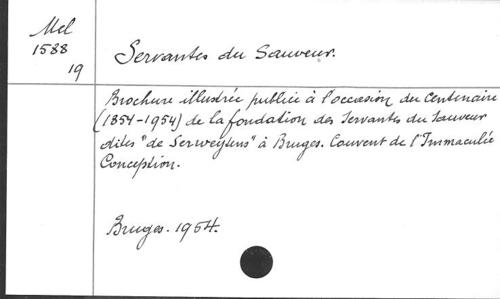 Mel
1588
19
Servantes du Sauveur.
Brochure illustrée publiée à l'occasion du Centenaire
(1854-1954) de la fondation des Servantes du Sauveur
dites "de Serweytens" à Bruges. Couvent de l'Immaculée
Conception.
Bruges. 1954.